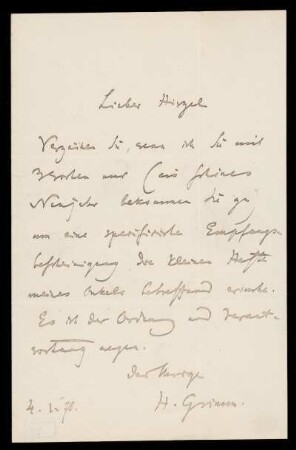 Lieber Hirzel
Verzeihen Sie, wenn ich Sie mit
3 Worten nur (ein schönes
Neujahr bekommen Sie
um eine spezifische Empfangs
bescheinigung die kleinen Hefte
meines Onkels betreffend ersuche.
Es ist der Ordnung und Verant-
wortung wegen.
Der Ihrige
4. 1. 70. H. Grimm.